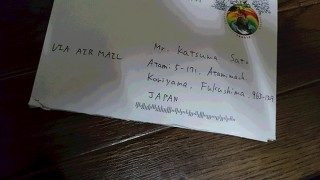 VIA AIR MAIL
Mr. Katsuma Sato
Atami 5-171, Atamimachi
Koriyama, Fukushima,
JAPAN